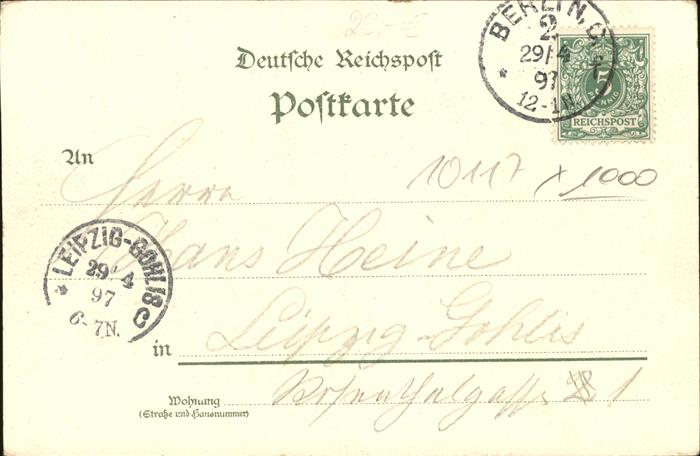 22,- €
Deutsche Reichspost
Postkarte
BERLIN, C.
2.
29/4
97
12-1N
5
PFENNIG
REICHSPOST
An
Herrn
10117 x 1000
Hans Heine
LEIPZIG-GOHLIS
29/4
97
6-7N.
C
in Leipzig-Gohlis
Wohnung
(Straße und Hausnummer)
1